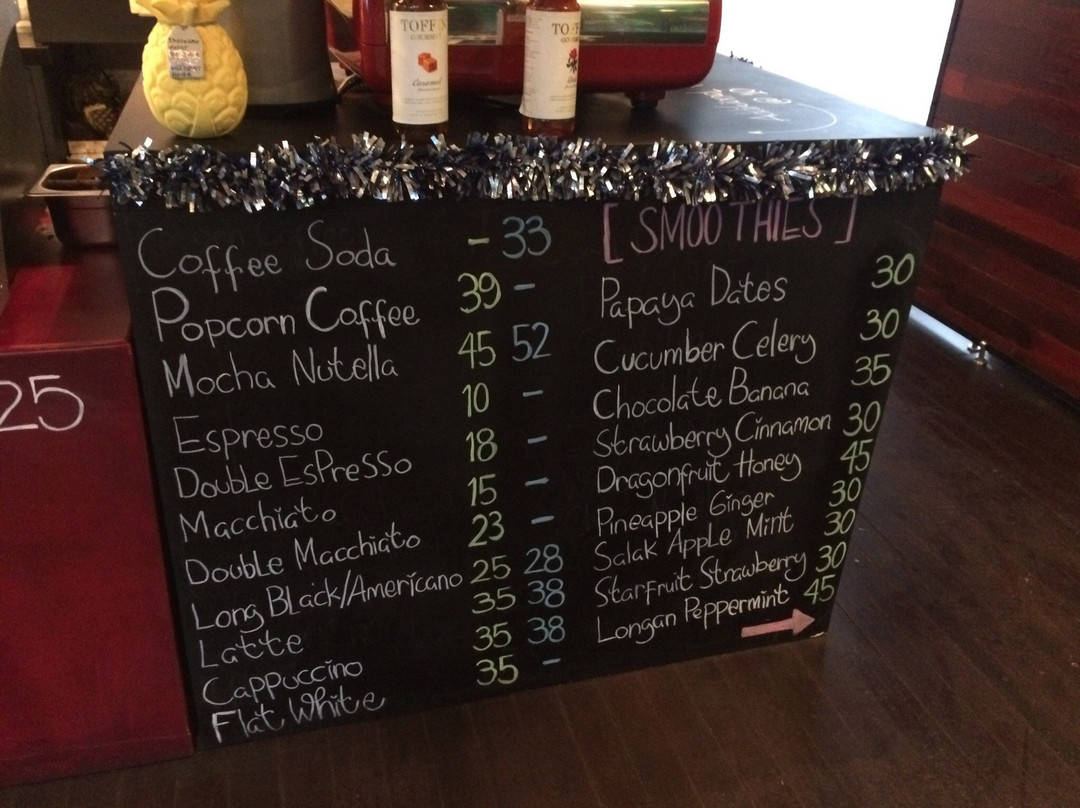 TOFFIN
Caramel
25
Coffee Soda - 33
Popcorn Coffee 39 -
Mocha Nutella 45 52
Espresso 10 -
Double Espresso 18 -
Macchiato 15 -
Double Macchiato 23 -
Long Black/Americano 25 28
Latte 35 38
Cappuccino 35 38
Flat White 35 -
[SMOOTHIES]
Papaya Dates 30
Cucumber Celery 30
Chocolate Banana 35
Strawberry Cinnamon 30
Dragonfruit Honey 45
Pineapple Ginger 30
Salak Apple Mint 30
Starfruit Strawberry 30
Longan Peppermint 45